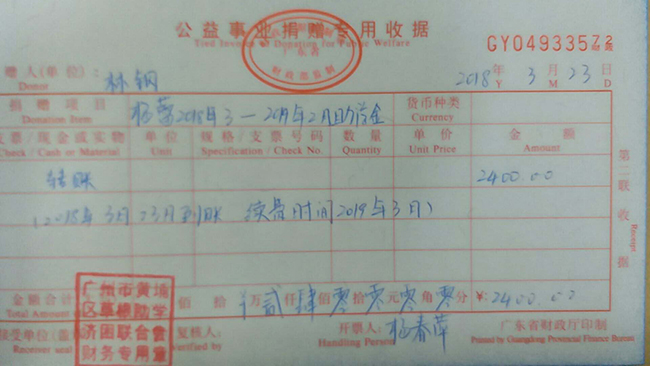 公益事业捐赠专用收据
Donation for Public Welfare
广东省
财政部监制
GY04933572
赠人(单位): 林钢
Donor
2018年 3月 23日
Y M D
捐赠项目 杨蕾2018年3—2019年2月助学金 货币种类
Donation Item Currency
支票/现金或实物 单位 规格/支票号码 数量 单价 金额
Check / Cash or Material Unit Specification / Check No. Quantity Unit Price Amount
转账 2400.00
(2018年3月23日到账 续费时间2019年3月)
第二联 收据
Receipt
金额合计 佰 拾 万贰仟肆佰零拾零元零角零分 ¥: 2400.00
Total Amount
广州市黄埔
区草根助学
济困联合会
财务专用章
接受单位(盖章) 复核人: 开票人: 杨春萍 广东省财政厅印制
Receiver seal Verified by Handling Person Printed by Guangdong Provincial Finance Bureau